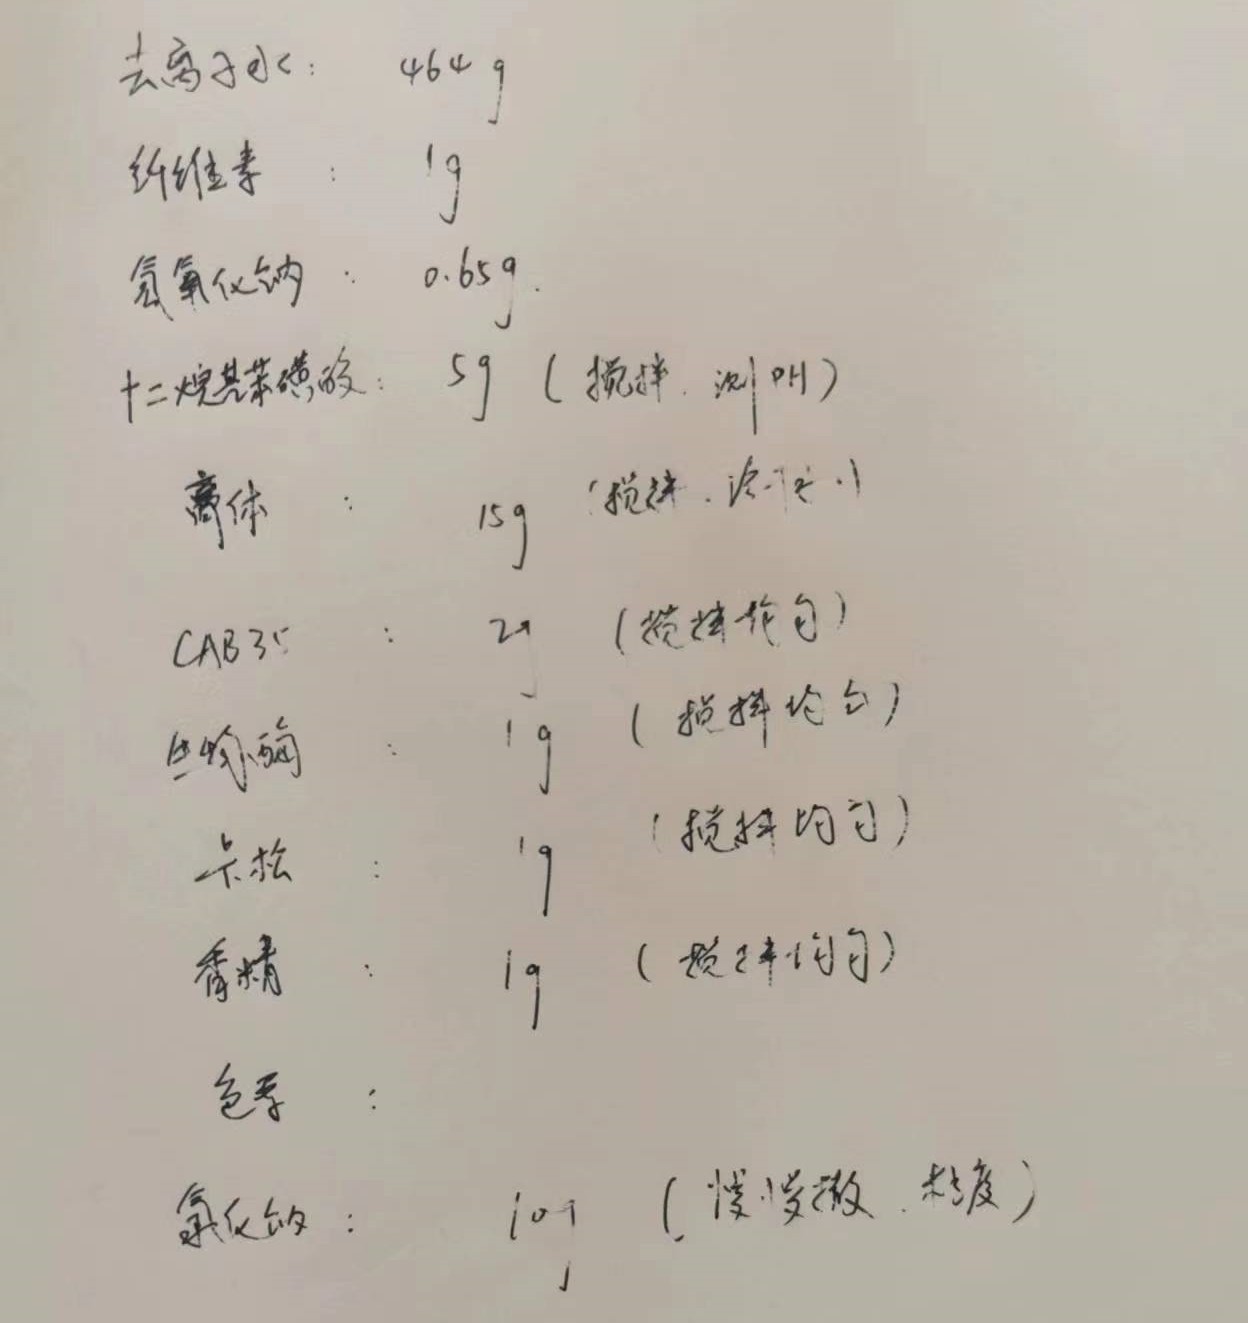 去离子水： 464g
纤维素： 1g
氢氧化钠： 0.65g.
十二烷基苯磺酸： 5g （搅拌．测PH）
离体： 15g （搅拌．
CAB35： 2g （搅拌均匀）
生物酶： 1g （搅拌均匀）
卡松： 1g （搅拌均匀）
香精： 1g （搅拌均匀）
色素：
氯化钠： 10g （慢慢撒．粘度）